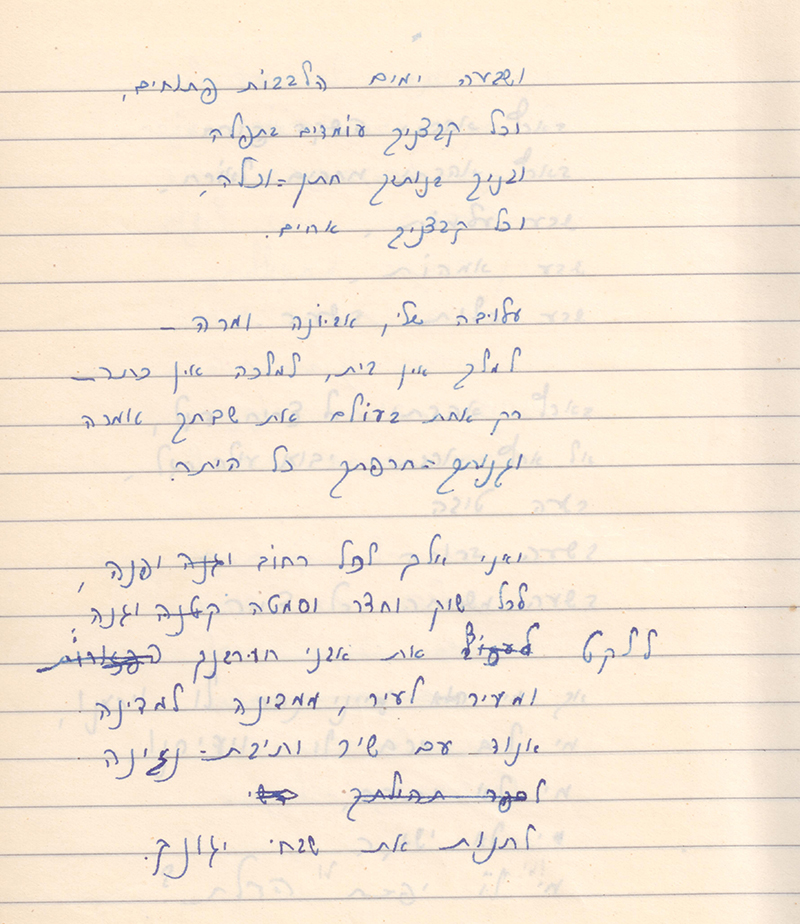 ושבעה ימים הלבבות פתוחים,
וכל קבצניך עומדים בתפלה
ובניך בנותיך חתן-וכלה,
וכל קבצניך אחים.
עלובה שלי, אביונה ומרה –
למלך אין בית, למלכה אין כתר –
רק אחת בעולם את שבחך אמרה
וגנותך-חרפתך כל היתר.
ואני אלך לכל רחוב וגנה ופנה,
לכל שוק וחצר וסמטה קטנה וגנה,
ללקט את אבני חורבנך הפזורות
ומעיר לעיר, ממדינה למדינה
אנוד עם שיר ותיבת-נגינה
לספר תהילתך
לתנות את שבחי יגונך.